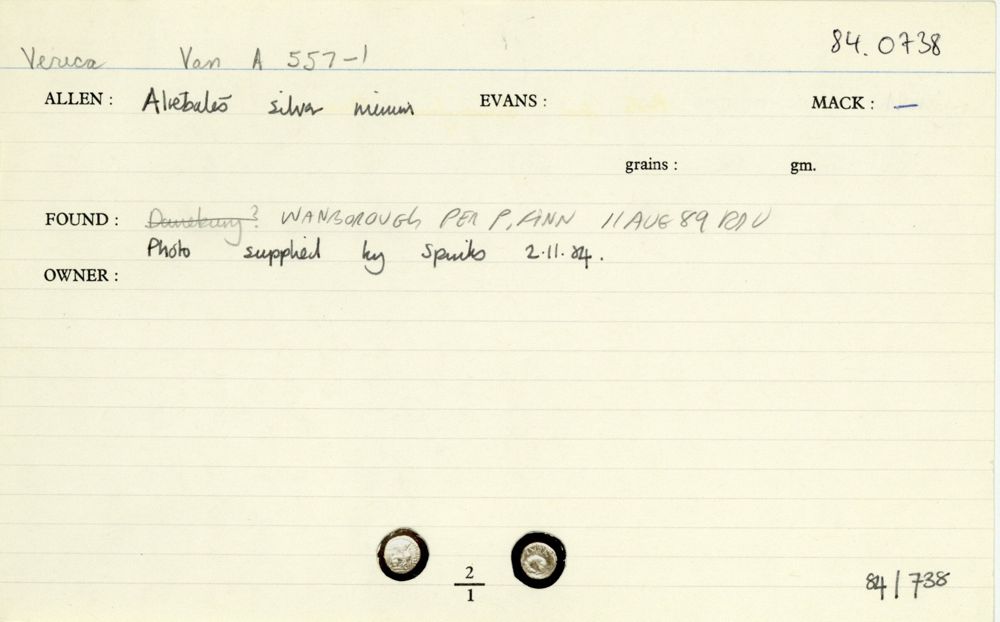 84.0738
Verica Van A 557-1
ALLEN : Atrebates silver minim EVANS : MACK : —
grains : gm.
FOUND : Danebury? WANBOROUGH PER P. FINN 11 AUG 89 RDV
Photo supplied by Spinks 2.11.84.
OWNER :
2
1
84/738